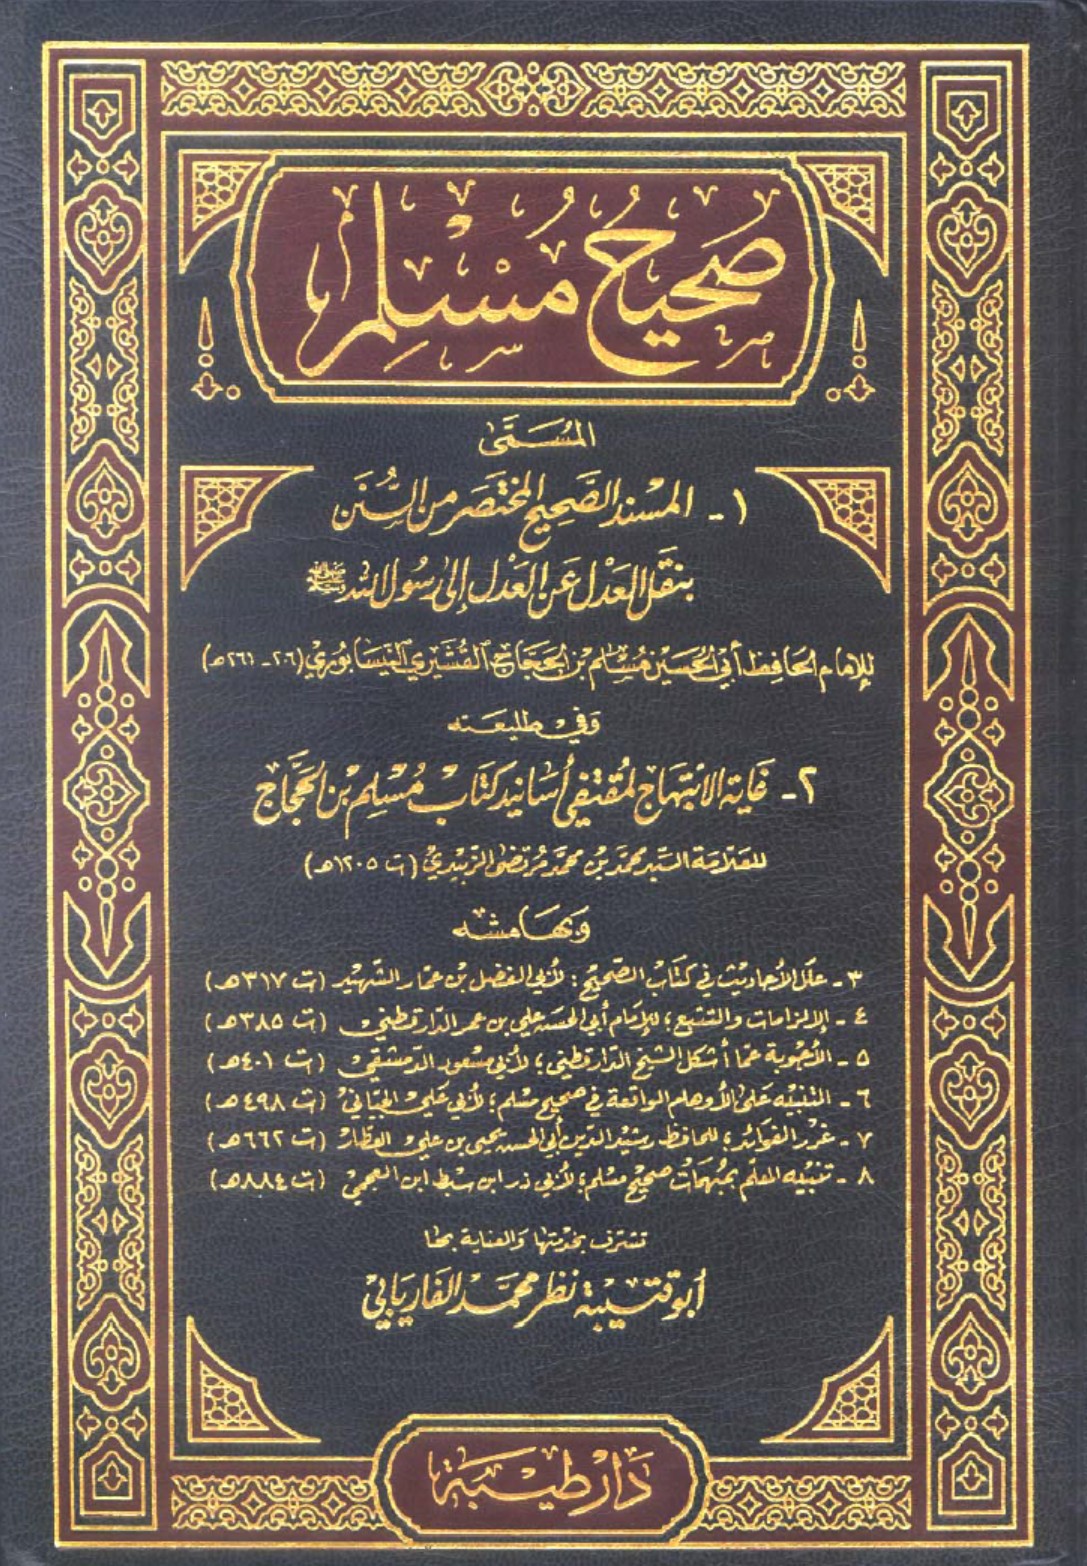 صَحِيحُ مُسْلِمٍ
المُسَمَّى
١ - المُسْنَد الصَّحِيح المُخْتَصَر مِن السُّنَن
بنَقْل العَدْل عَن العَدْل إلى رَسُول الله ﷺ
لِلإمَام الحَافِظ أَبي الحُسَين مُسْلم بن الحَجَّاج القُشَيري النَّيسَابُوري (٢٠٦ - ٢٦١ هـ)
وَفي طليعَته
٢ - غَاية الابْتِهَاج لمُقْتَفي أسَانيد كتَاب مُسْلِم بن الحَجَّاج
للعَلّامَة السَّيد محمّد بن محمّد مُرتضى الزَّبيديّ (ت ١٢٠٥ هـ)
وَبهَامشه
٣ - علل الأحاديث في كتَاب الصَّحيح : لأبي الفضل بن عمّار الشَّهيد (ت ٣١٧ هـ)
٤ - الإلزامات والتتبع ؛ للإمَام أبي الحسن علي بن عمر الدّارقطني (ت ٣٨٥ هـ)
٥ - الأجوبة عمّا أشكل الشيخ الدّارقطني ؛ لأبي مسعود الدّمشقي (ت ٤٠١ هـ)
٦ - التنبيه عَلى الأوهام الواقعة في صَحيح مسْلم ؛ لأبي عَلي الجيّاني (ت ٤٩٨ هـ)
٧ - غرر الفوائد ؛ للحافظ رشيد الدّين أبي الحسن يحيى بن علي العطّار (ت ٦٦٢ هـ)
٨ - تنبيه المعلم بمُبهمَات صَحيح مسْلم ؛ لأبي ذر ابن سبط ابن العجمي (ت ٨٨٤ هـ)
تشرف بخدمتها وَالعناية بها
أبُو قتَيبة نظر محمَّد الفَاريَابي
دَار طَيْبَة